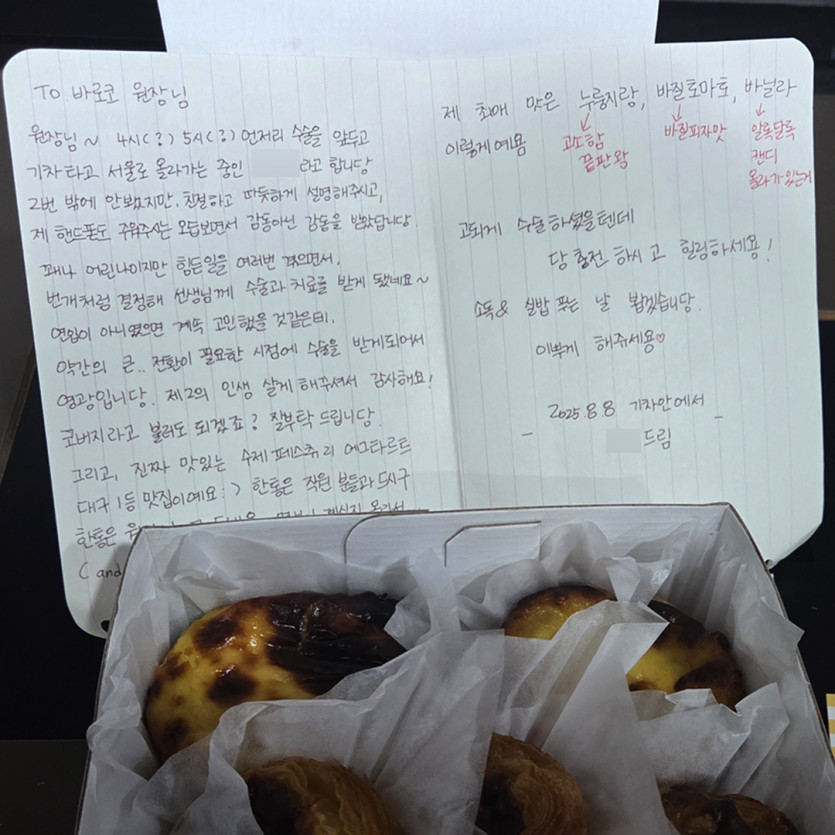 TO.바로코 원장님
원장님~ 4시(?) 5시(?) 언저리 수술을 앞두고
기차타고 서울로 올라가는 중인 라고 합니당
2번 밖에 안봤지만, 친절하고 따듯하게 설명해주시고,
제 핸드폰도 주워주시는 모습보면서 감동아닌 감동을 받았답니당.
꽤나 어린나이지만 힘든일을 여러번 겪으면서.
번개처럼 결정해 선생님께 수술과 치료를 받게 됐네요~
연임이 아니였으면 계속 고민했을 것같은데.
약간의 큰.. 전환이 필요한 시점에 수술을 받게되어서
영광입니당. 제2의 인생 살게 해주셔서 감사해요!
코버지라고 불러도 되겠죠? 잘부탁 드립니당.
그리고, 진짜 맛있는 수제 페스츄리 에그타르트
대구 1등 맛집이예요:> 한통은 직원 분들과 드시구
한통은
(and
제 최애 맛은 누룽지랑, 바질토마토, 바닐라
이렇게예욤
고소함
끝판왕
바질피자맛
알록달록
캔디
올라가있는거
고되게 수술하셨을텐데
당 충전 하시고 힐링하세용!
소독& 실밥 푸는 날 뵙겠습니당.
이쁘게 해주세용♡
2025.8.8 기차안에서
- 드림 -